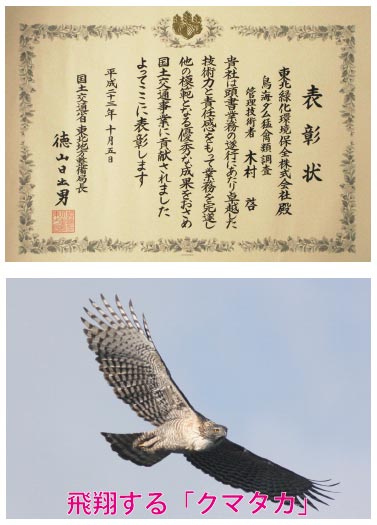 表彰状
東北緑化環境保全株式会社殿
鳥海ダム猛禽類調査
管理技術者 木村 啓
貴社は頭書業務の遂行にあたり卓越した
技術力と責任感をもって業務を完遂し
他の模範となる優秀な成果をおさめ
国土交通事業に貢献されました
よってここに表彰します
平成二十二年十月五日
国土交通省東北地方整備局長
徳山日出男
飛翔する「クマタカ」